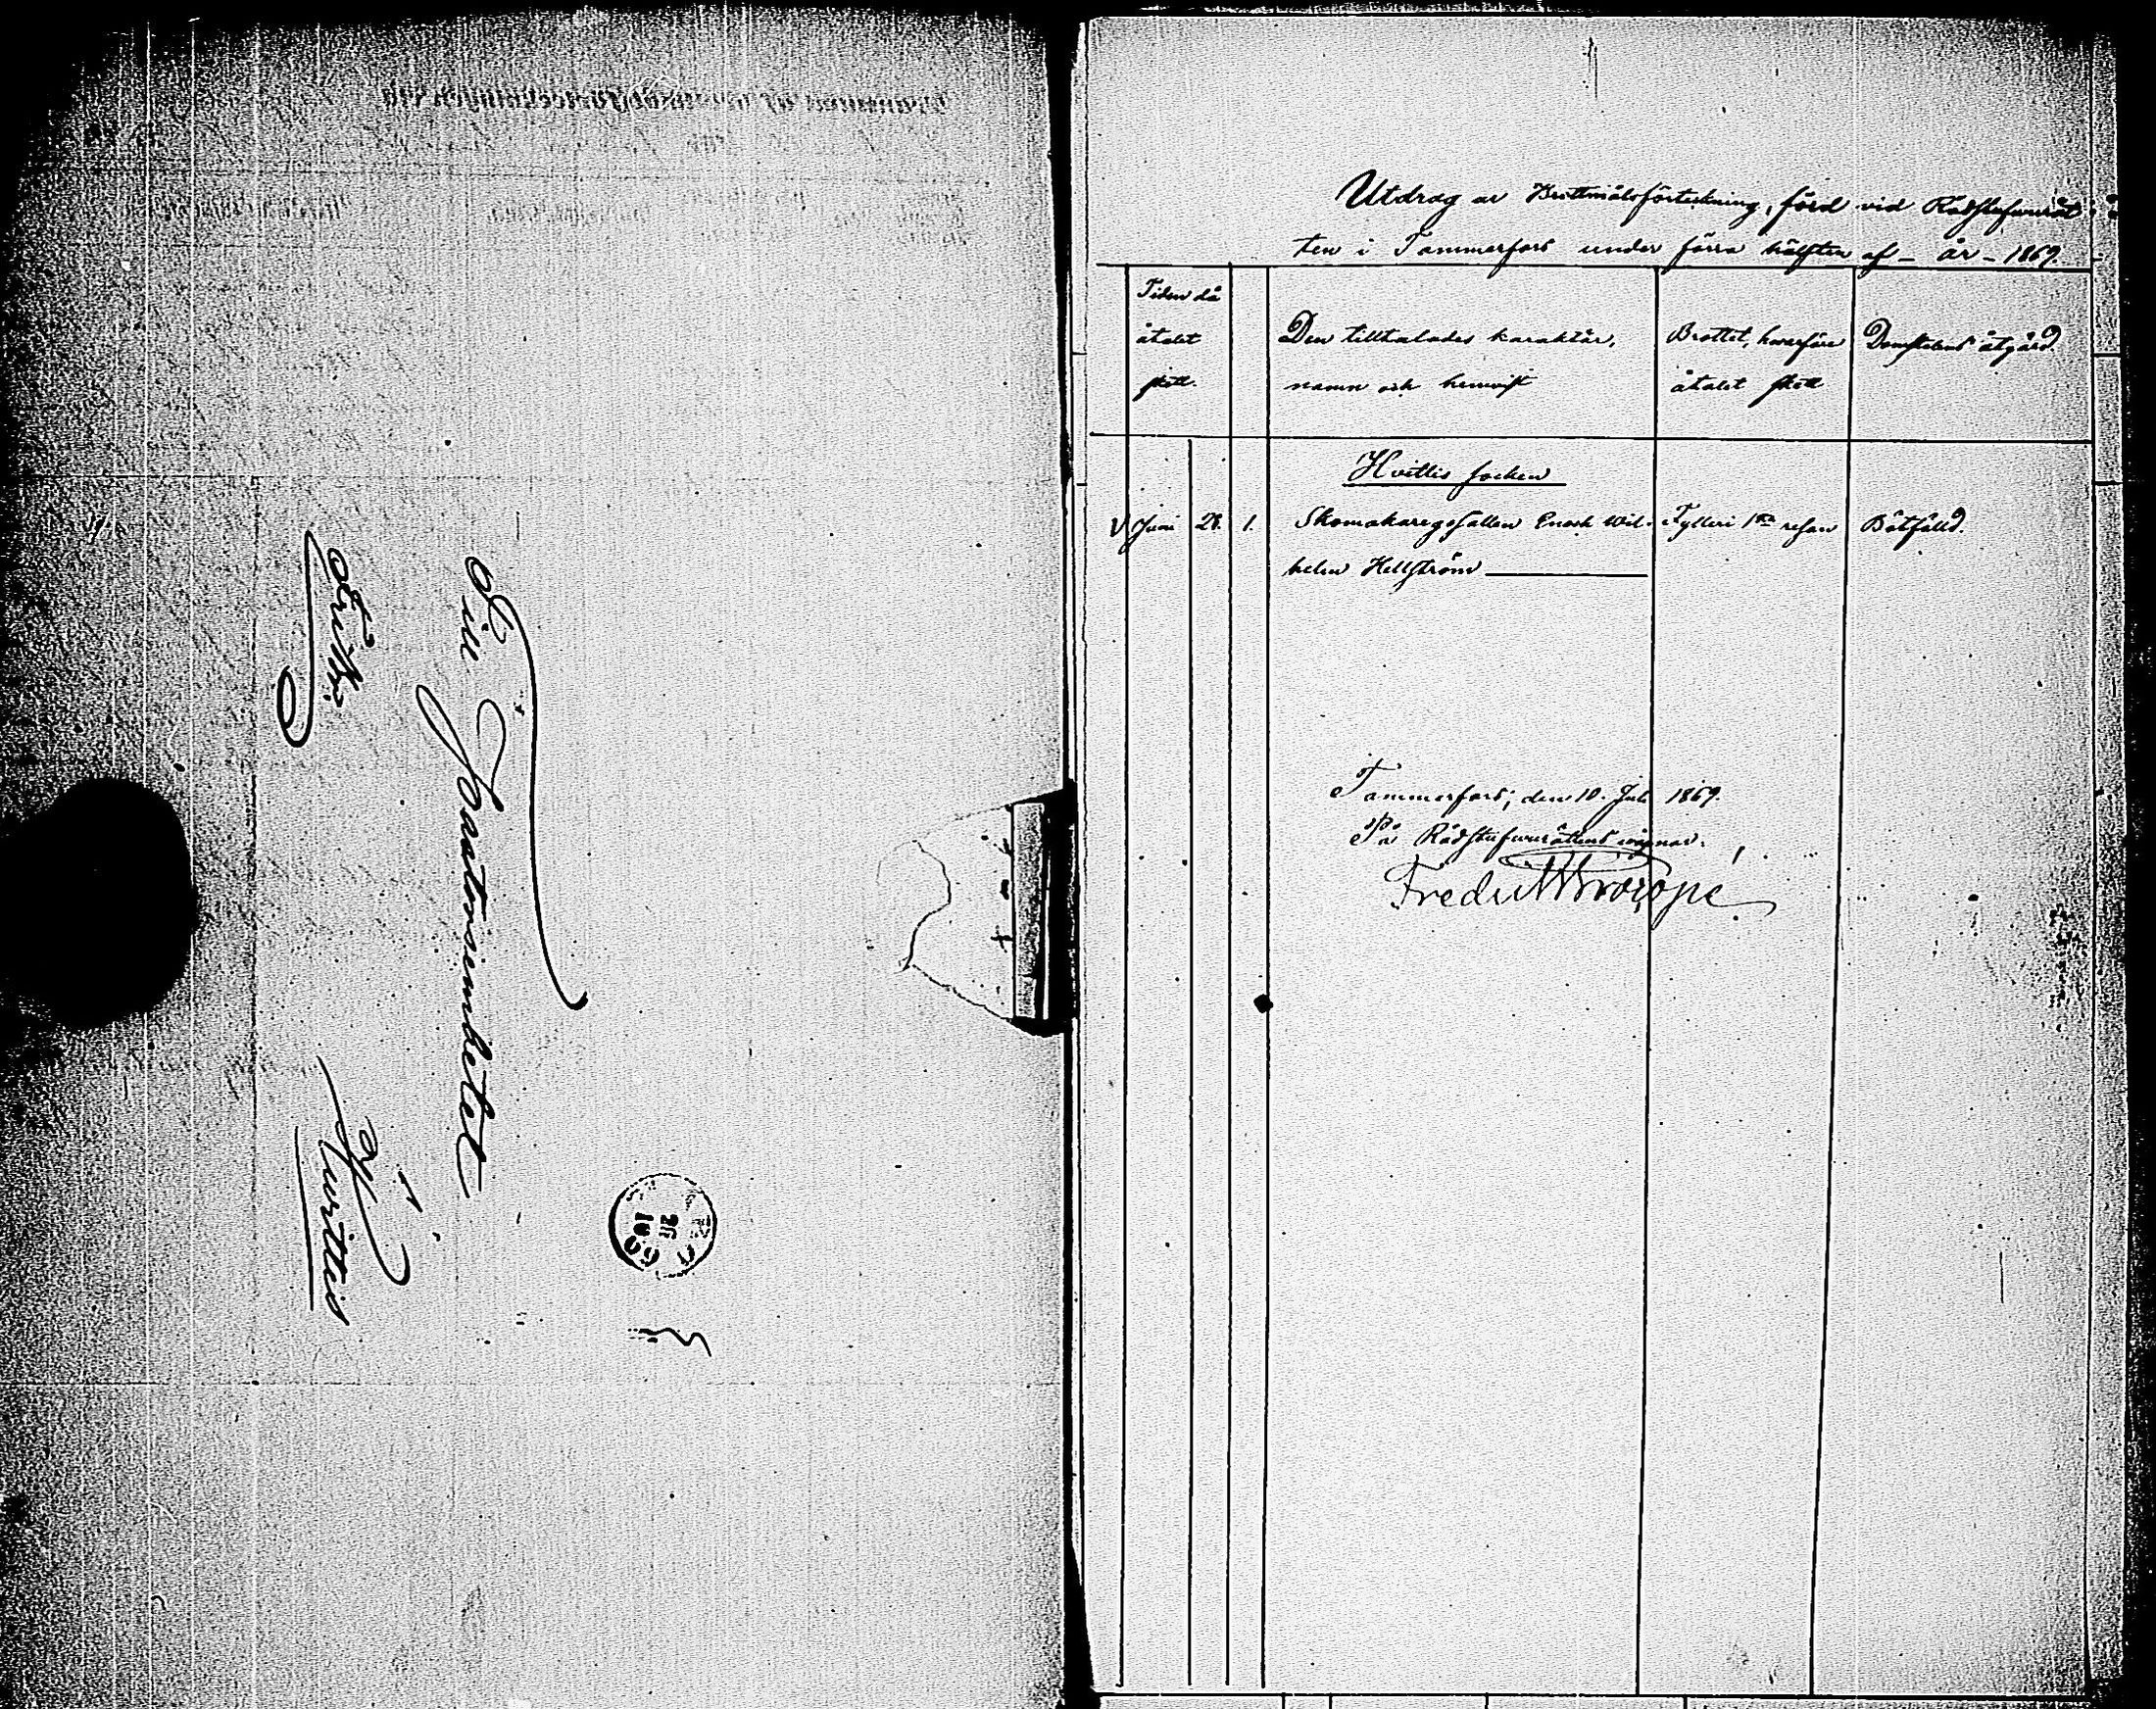 Till Pastorsembetet
i
Fribr.
Hvittis
10
69
Utdrag ur Brottmålsförteckning, förd vid Rådstufvurät
ten i Tammerfors under förra hälften af – år – 1869.
Tiden då
åtalet
skett.
Den tilltalades karaktär,
namn och hemvist
Brottet, hvarföre
åtalet skett
Domstolens åtgärd.
Hvittis socken
V Juni 28. 1. Skomakaregesällen Enock Wil- Fylleri 1sta resan Bötfälld.
helm Hellström
Tammerfors, den 10. Juli 1869.
På Rådstufvurättens vägnar.